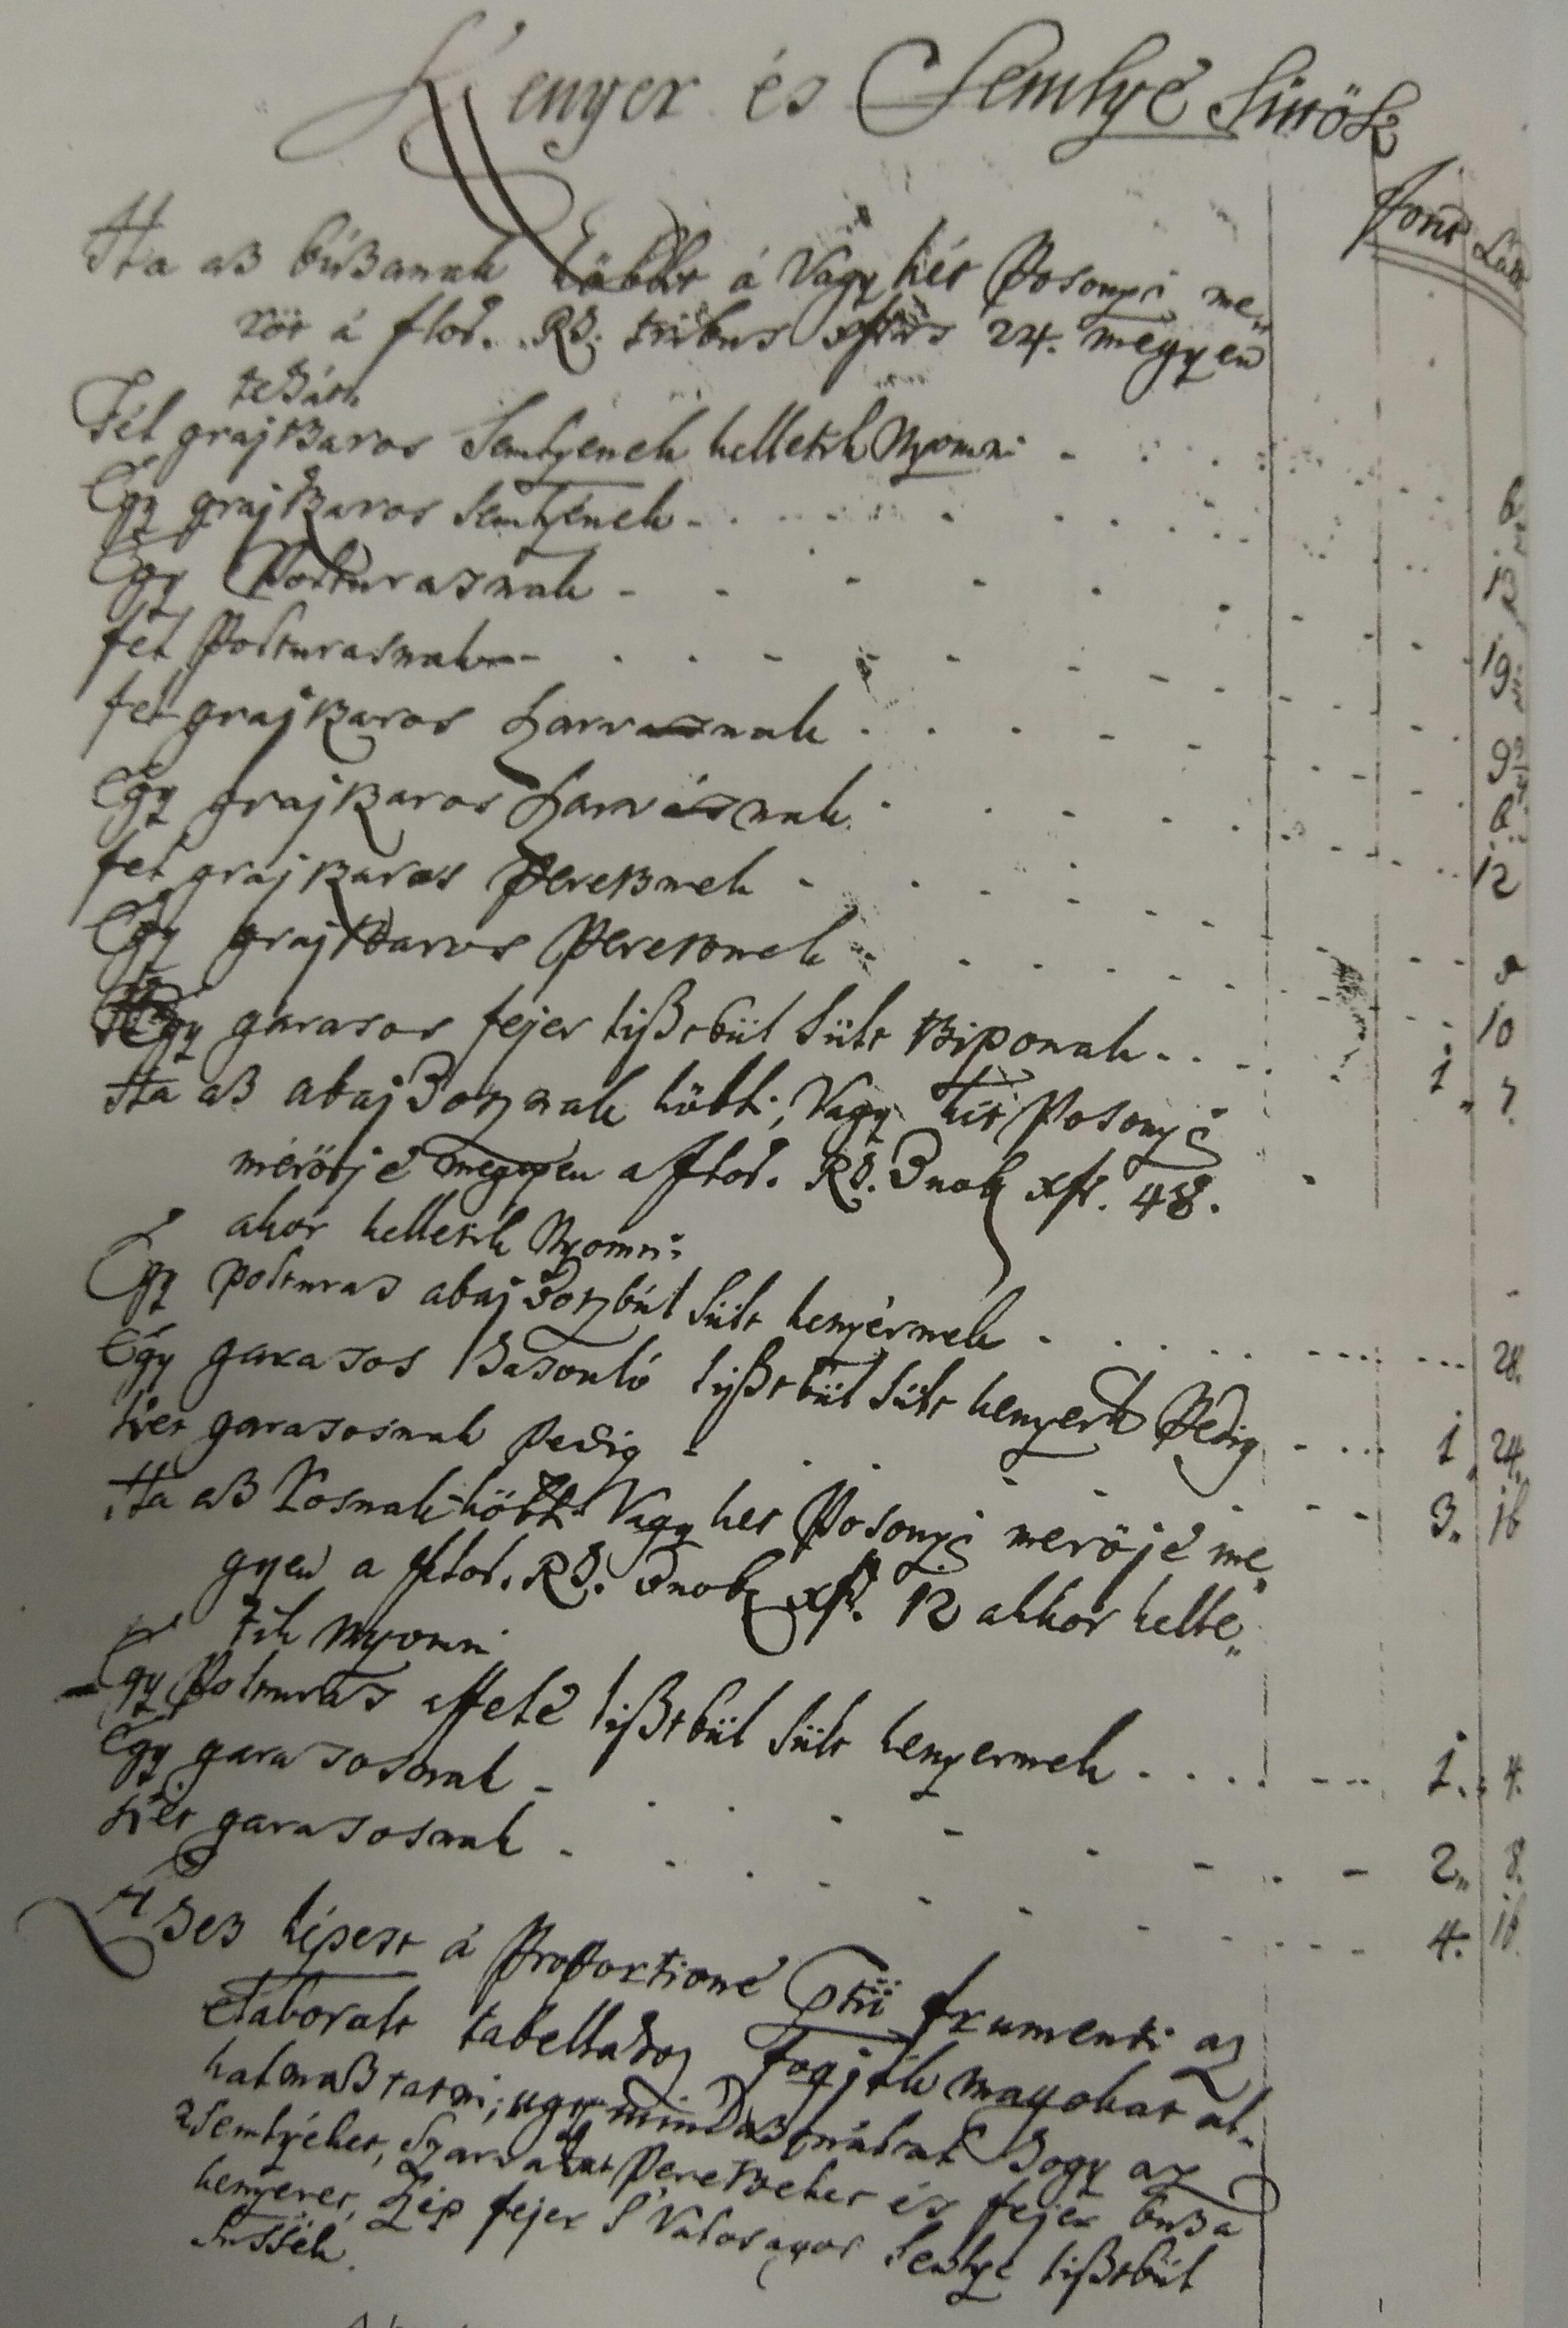 Kenyer és Semlye Sütök
Font Lat
Ha aß búßanak köbli á Vagy két Posonyi me„
röt á flor. Rh. tribus xfris 24. megyen
tehát
Fél grajkaros Semlyének kelletik Nyomni
Egy grajkaros Semlyének 13
Egy Polturasnak 19
fél Polturasnak 9
fél grajkaros Zarvasnak 6
Egy grajkaros Zarvásnak 12
fél grajkaros Perecznek
Egy grajkaros Perecznek 10
Egy garasos fejer lißtbül Sült Cziponak 1„ 7.
Ha aß abajdocznak köbli, Vagy két Posonyi
merörjé megyen a flor. Rh. xfr. 48.
akor kelletik Nyomni
Egy polturas abajdoczbúl Sült kenyérnek 28.
Egy garasos hasonló lißtbül Sült kenyerk Pedig 1„ 24.
két garasosnak pedig 3„ 16
Ha aß Rosnak köbli Vagy ket Posonyi meröjé me„
gyen a flor. Rh. xfr. 12 akkor kelle„
tik Nyomni
Egy Polturás affele lißtbül Sült kenyernek 1. 4.
Egy garasosnak 2„ 8.
két garasosnak 4. 16
Ehez képest á Proportione frumenti az
elaborált tabellahoz fogják magokat al„
kalmaßtatni; ugy mindaßonáltal hogy az
Semlyéket, Szarvakat Pereczeket és fejér buza
kenyeret, Zép fejer s Valosagos Semlye lißtbül
Sussék.